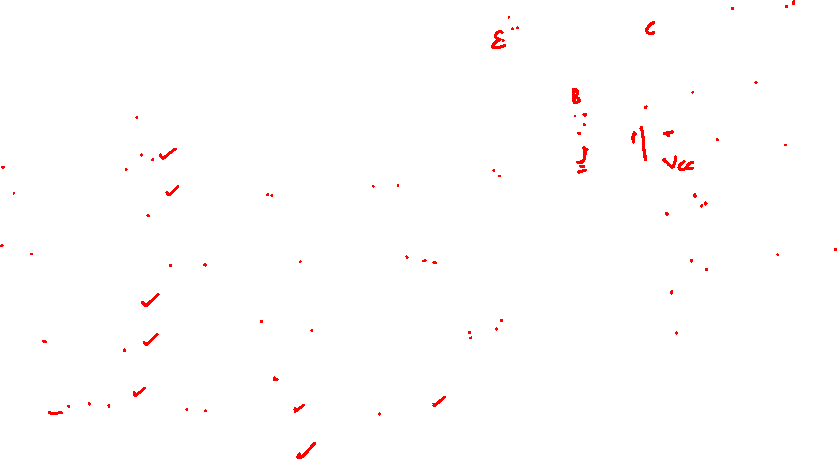 ε C
B
Vcc